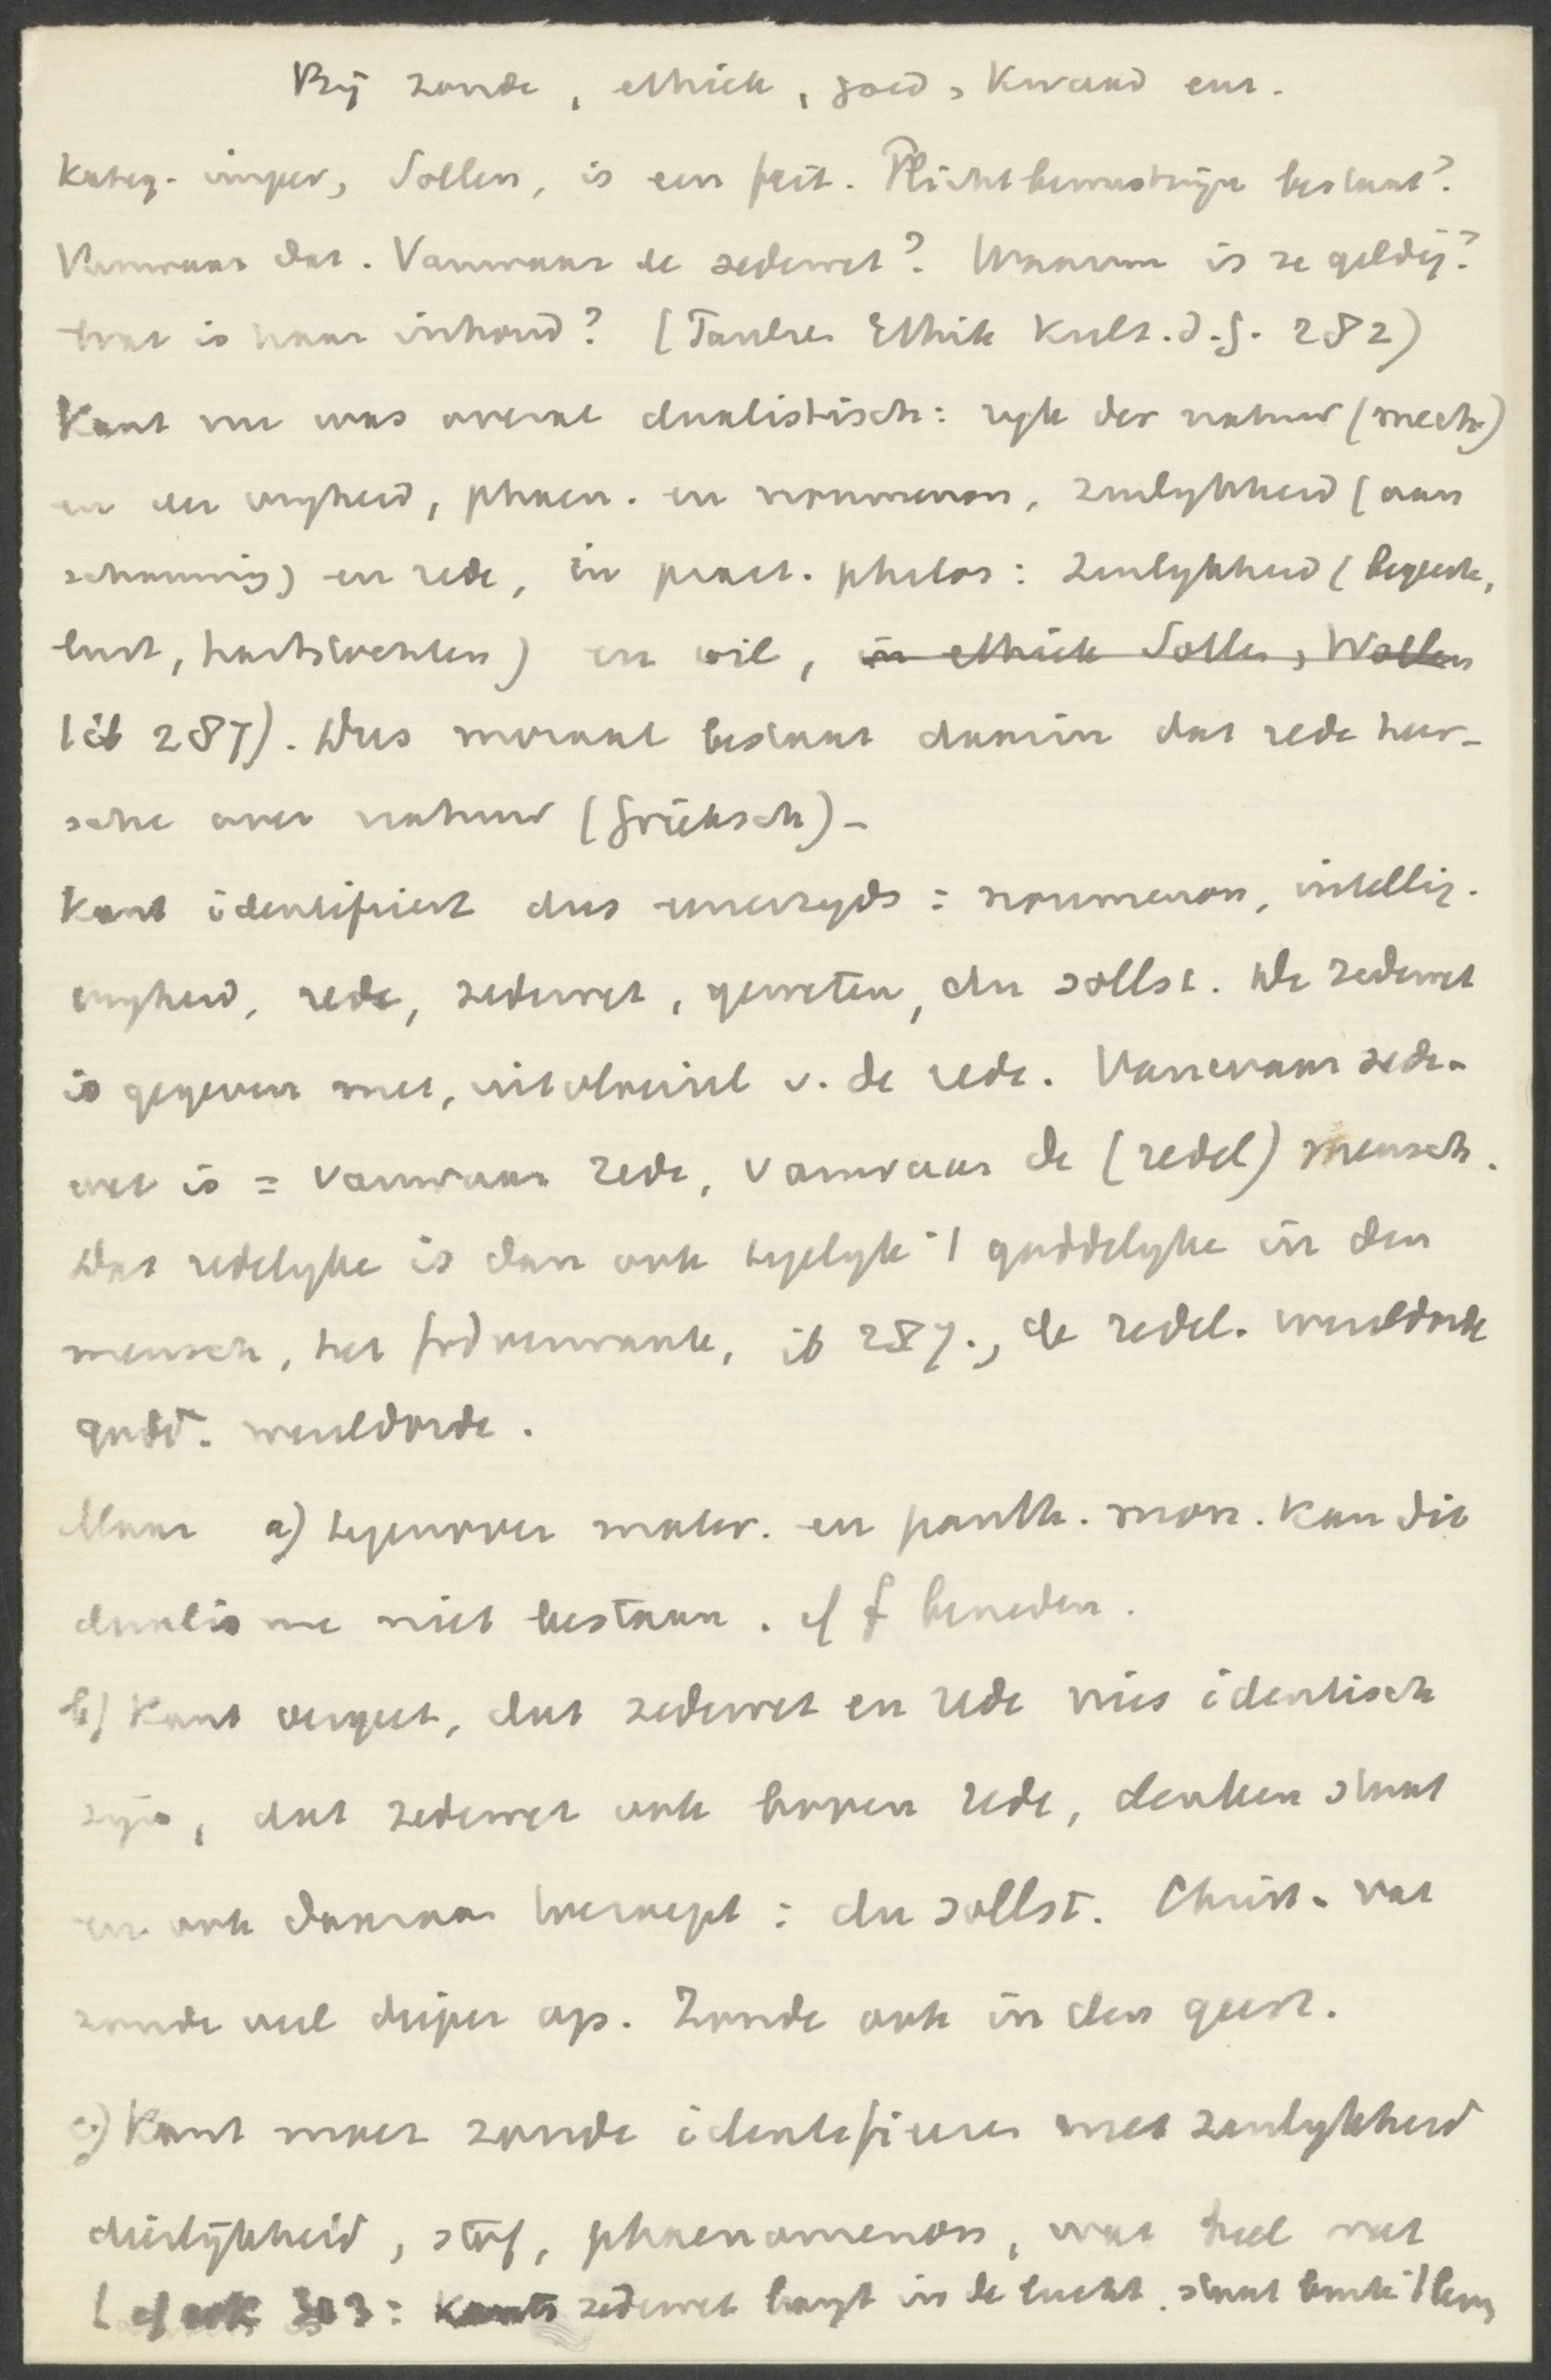 Bij zonde, ethiek, goed, kwaad enz.
Kateg. imper, Sollen, is een feit. Plichtbewustzijn bestaat?
Vanwaar dat. Vanwaar de zedewet? Waarom is ze geldig?
Wat is haar inhoud? (Paulsen Ethik Kult. d. G. 282)
Kant nu was overal dualistisch: ryk der natuur (mech)
en der vryheid, phaen. en noumenon, zinlykheid (aan
schouwing) en rede, in pract. philos: zinlykheid (begeerte,
lust, hartstochten) en wil, in ethiek Sollen, Wollen
(ib 287). Dus moraal bestaat daarin dat rede heer-
sche over natuur (Grieksch) -
Kant identifieert dus eenerzyds: noumenon, intellig.
vryheid, rede, zedewet, geweten, du sollst. De zedewet
is gegeven met, uitvloeisel v. de rede. Vanwaar zede-
wet is = vanwaar rede, vanwaar de (redel) mensch.
Dat redelyke is dan ook tegelyk 't goddelyke in den
mensch, het Godverwante, ib 287., de redel. wereldorde
godd. wereldorde.
Maar a) tegenover mater. en panth. mon. kan dit
dualisme niet bestaan. cf f beneden.
b) Kant vergeet, dat zedewet en rede niet identisch
zyn, dat zedewet ook boven rede, denken staat
en ook daarvoor toeroept: du sollst. Christ. vat
zonde veel dieper op. Zonde ook in den geest.
c) Kant moet zonde identifieeren met zinlykheid
dierlijkheid, stof, phaenomenon, wat heel wat
(cf ook 303: Kants zedewet hangt in de lucht. staat buiten 't